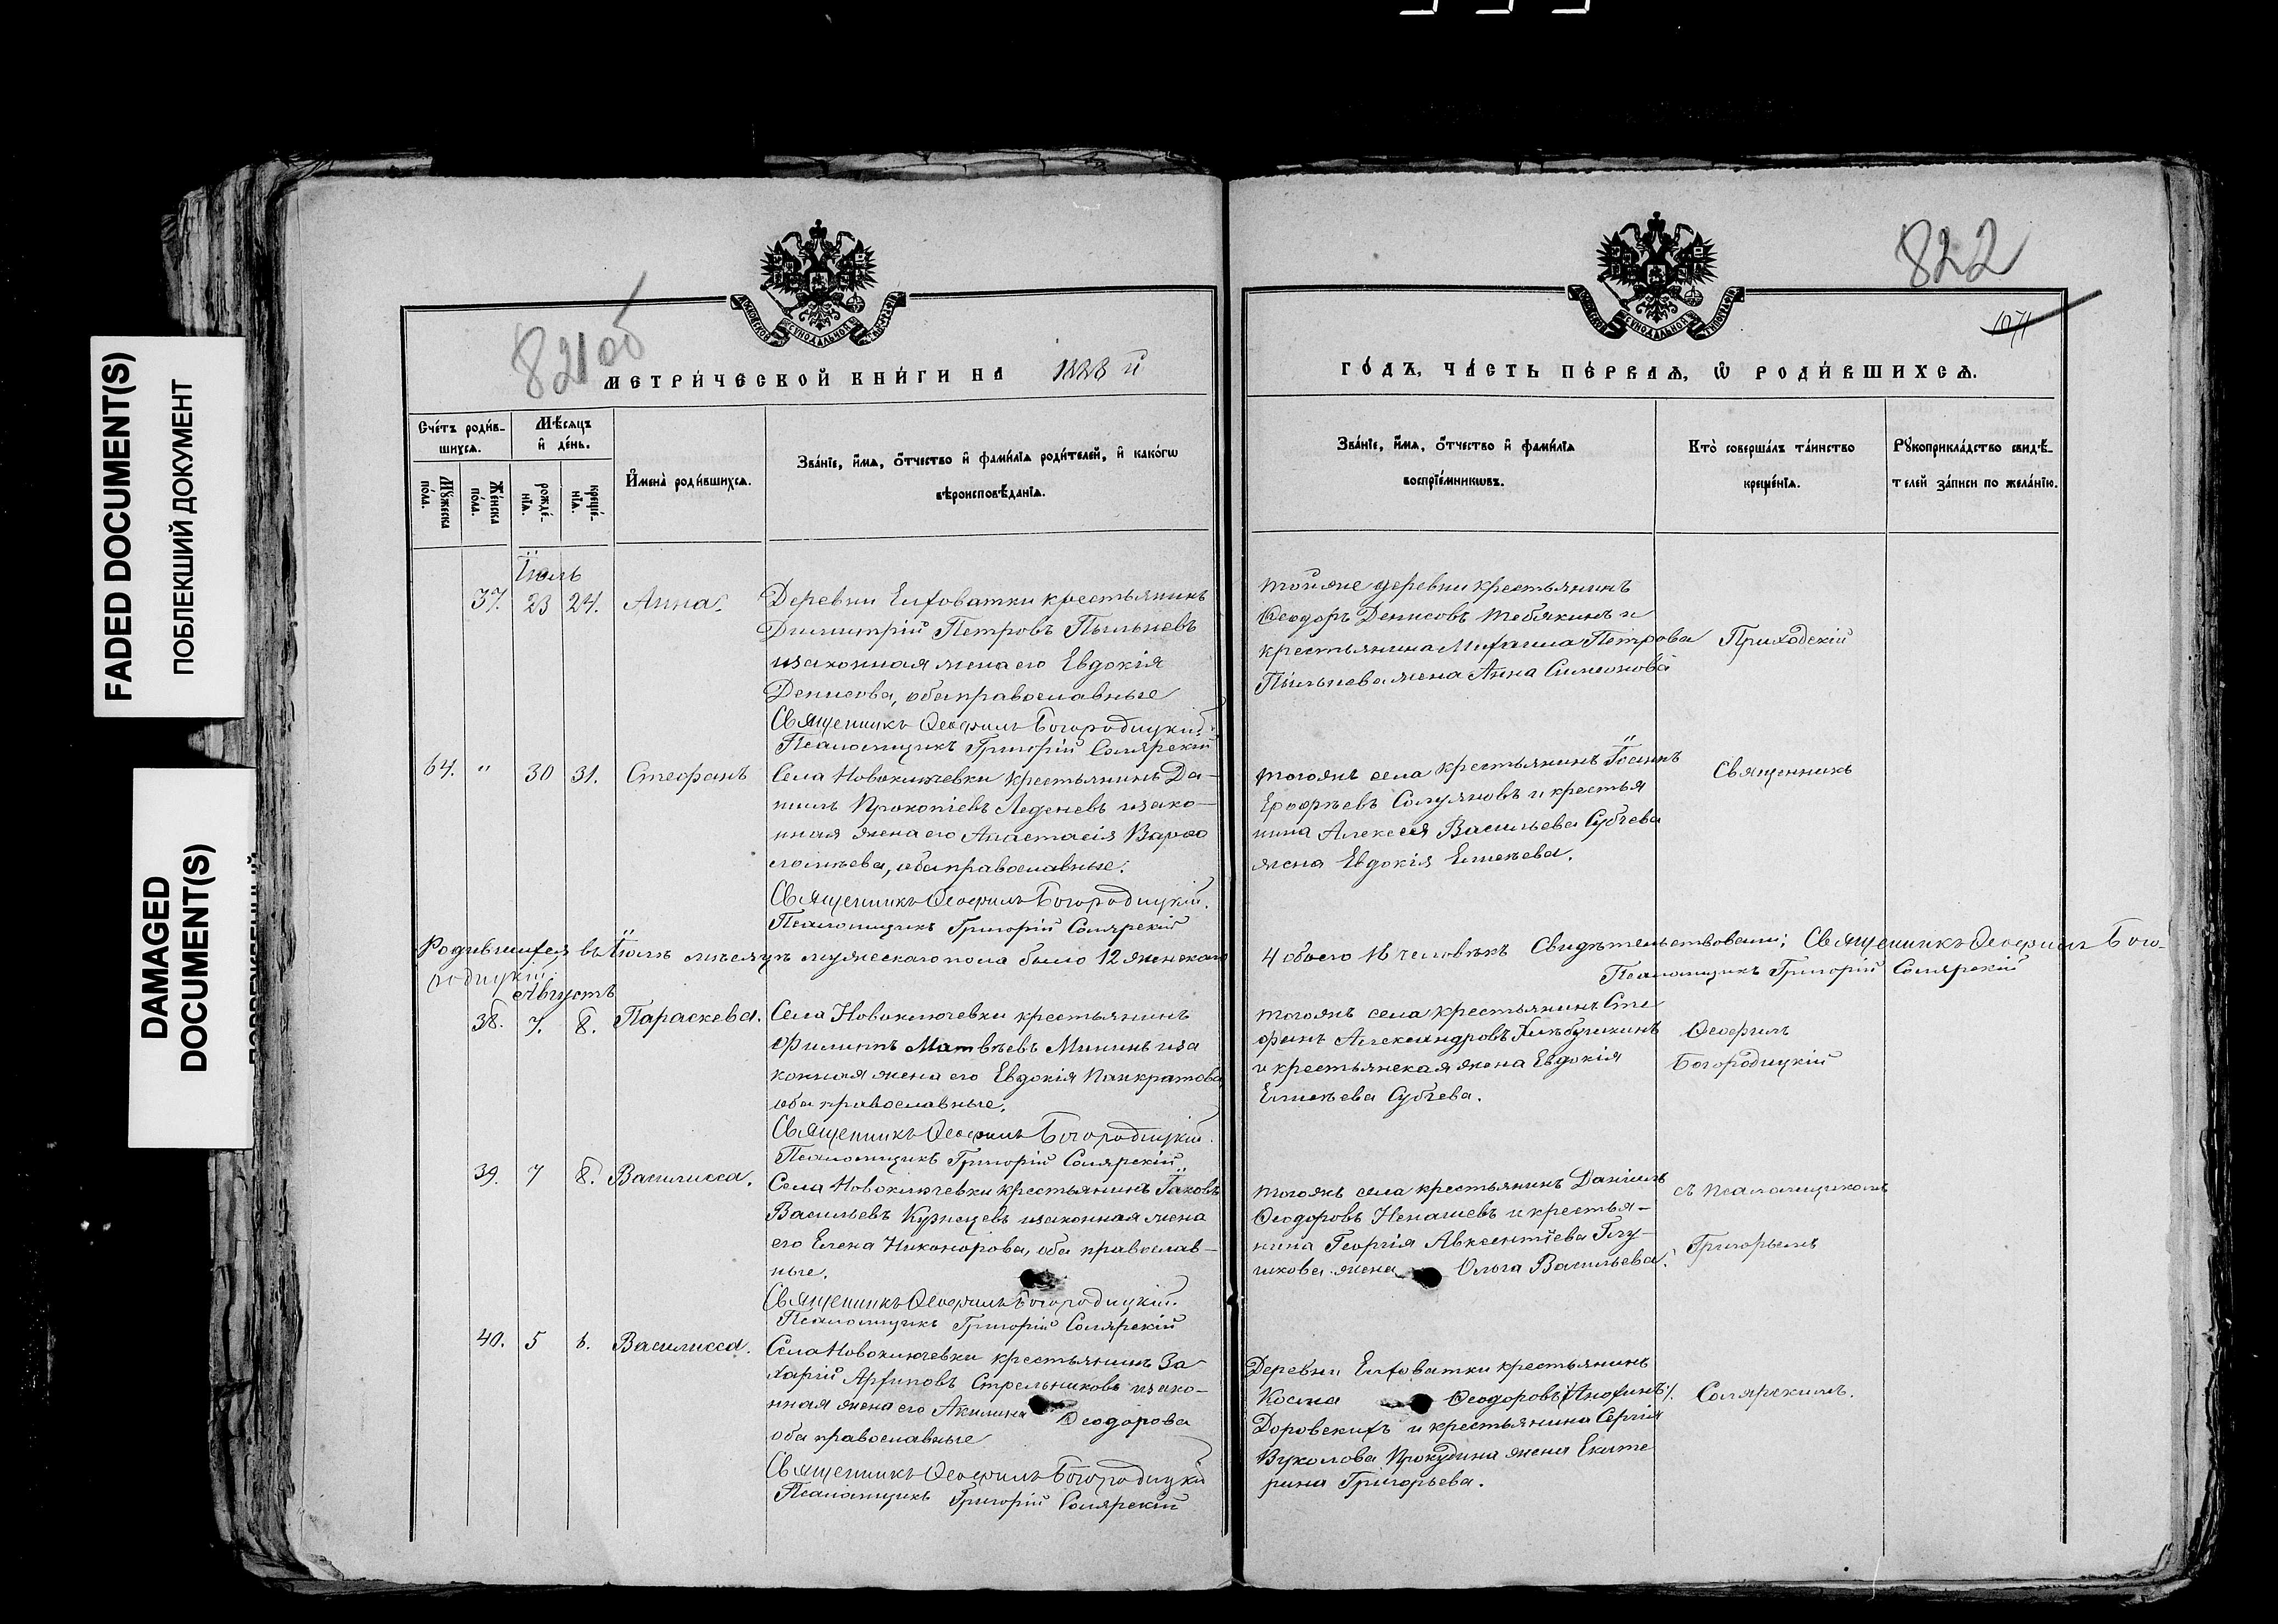 FADED DOCUMENT(S)
ПОБЛЕКШИЙ ДОКУМЕНТ
DAMAGED
DOCUMENT(S)
821об
822
1071
МОСКОВСКОЙ СѴНОДАЛЬНОЙ ТИПОГРАФІИ
МОСКОВСКОЙ СѴНОДАЛЬНОЙ ТИПОГРАФІИ
МЕТРИ́ЧЕСКОЙ КНИ́ГИ НА 1888 й
ГО́ДЪ, ЧА́СТЬ ПЕ́РВАѦ, Ѡ҆ РОДИ́ВШИХСѦ.
Сче́тъ роди́в-
шихсѧ.
Мꙋ́жеска по́ла.
Же́нска по́ла.
Мѣ́сѧцъ
и҆ де́нь.
рожде́-
нїѧ.
креще́-
нїѧ.
И҆мена̀ роди́вшихсѧ.
Зва́нїе, и҆́мѧ, ѻ҆́тчество и҆ фами́лїѧ роди́телей, и҆ како́гѡ
вѣроисповѣ́данїѧ.
Зва́нїе, и҆́мѧ, ѻ҆́тчество и҆ фами́лїѧ
воспрїе́мникѡвъ.
Кто̀ соверша́лъ та́инство
креще́нїѧ.
Рꙋкоприкла́дство свидѣ́-
телей за́писи по жела́нїю.
Іюль
37. 23 24. Анна.
Деревни Елховатки крестьянинъ
Димитрій Петровъ Пыльневъ
изаконная жена его Евдокія
Денисова, оба православные
Священникъ Ѳеофилъ Богородицкій.
Псаломщикъ Григорій Солярскій
тойже деревни крестьянинъ
Ѳеодоръ Денисовъ Тебякинъ и
крестьянина Михаила Петрова
Пыльнева жена Анна Симеонова
Приходскій
64. " 30 31. Стефанъ
Села Новоключевки крестьянинъ Да-
ніилъ Прокопіевъ Леденевъ изако-
нная жена его Анастасія Варѳо
ломѣева, оба православные.
Священникъ Ѳеофилъ Богородицкій.
Псаломщикъ Григорій Солярскій
тогожъ села крестьянинъ Іоаннъ
Ерофѣевъ и крестья
нина Алексея Васильева Субчева
жена Евдокія
Священникъ
Родившихся въ Іюлѣ мѣсяцѣ мужескаго пола было 12 женскаго
4 обоего 16 человѣкъ Свидѣтельствовали; Священникъ Ѳеофилъ Бого-
родицкій.
Псаломщикъ Григорій Солярскій
Августъ
38. 7. 8. Параскева.
Села Новоключевки крестьянинъ
Филиппъ Матвѣевъ Мининъ иза
конная жена его Евдокія Панкратова
оба православные.
Священникъ Ѳеофилъ Богородицкій.
Псаломщикъ Григорій Солярскій
тогожъ села крестьянинъ Сте
фанъ Александровъ Хлѣбушкинъ
и крестьянская жена Евдокія
Субчева.
Ѳеофилъ
Богородицкій
39. 7 8. Василисса.
Села Новоключевки крестьянинъ Іаковъ
Васильевъ Кузнецевъ изаконная жена
его Елена Никонорова, оба православ-
ные.
Священникъ Ѳеофилъ Богородицкій.
Псаломщикъ Григорій Солярскій
тогожъ села крестьянинъ Даніилъ
Ѳеодоровъ Ненашевъ и крестья-
нина Георгія Авксентіева Глу-
шкова жена Ольга Васильева.
съ псаломщикомъ
Григорьемъ
40. 5 8. Василисса.
Села Новоключевки крестьянинъ За
харій Архиповъ Стрельниковъ изако-
нная жена его Акилина Ѳеодорова
оба православные
Священникъ Ѳеофилъ Богородицкій
Псаломщикъ Григорій Солярскій
Деревни Елховатки крестьянинъ
Косма Ѳеодоровъ (Анохинъ).
Доровскихъ и крестьянина Сергія
Вуколова Прокудина жена Екате
рина Григорьева.
Солярскимъ.